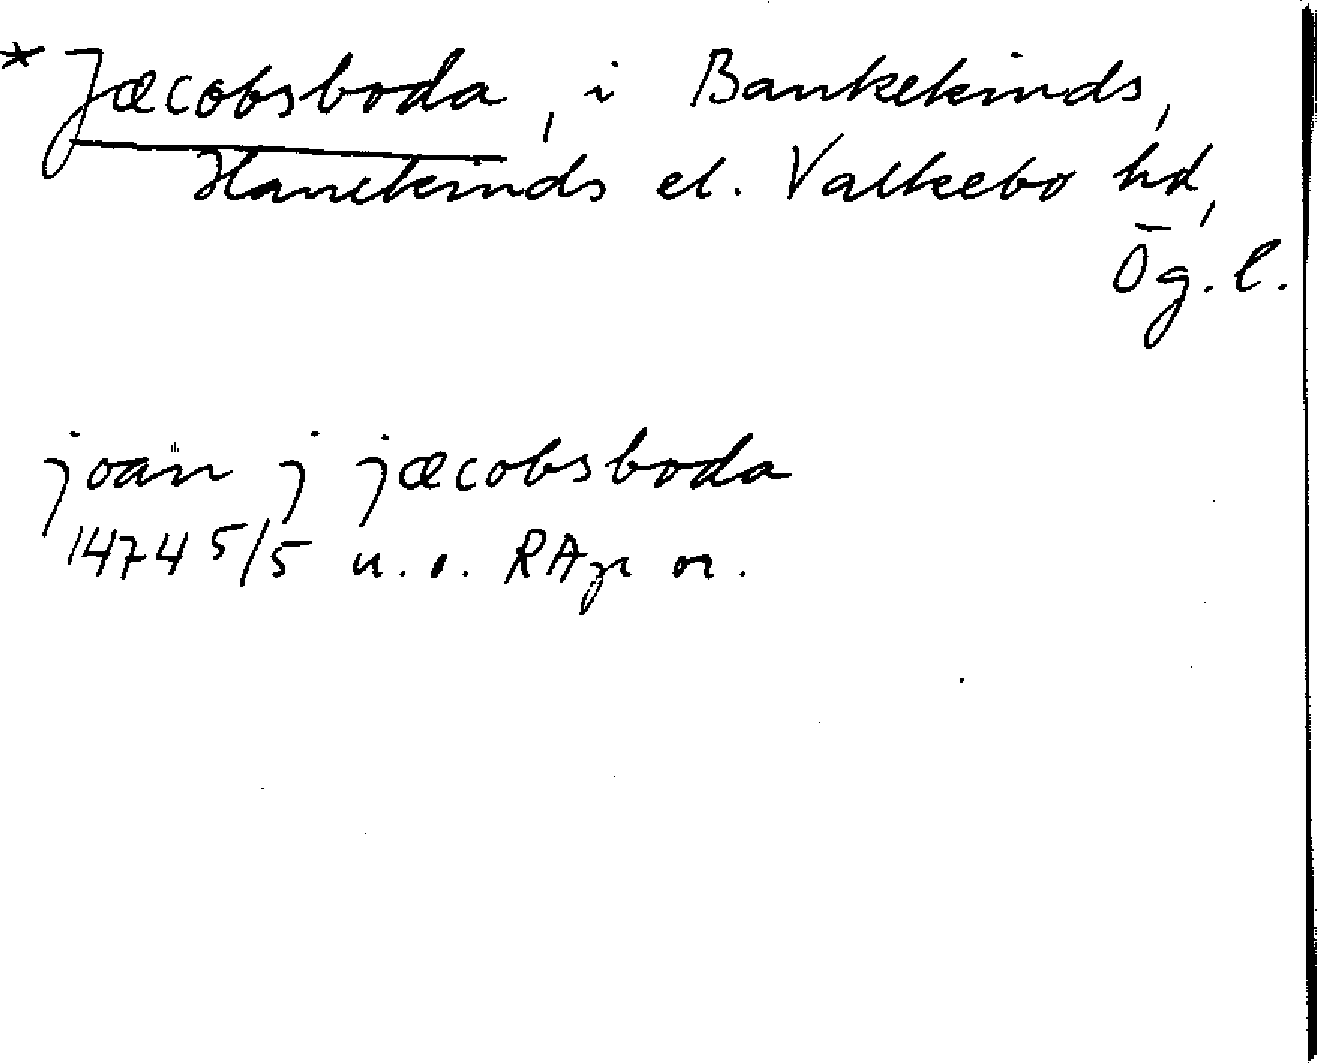 * Jæcobsboda, i Bankekinds,
Hanekinds el. Valkebo hd,
Ög. l.
joan j jæcobsboda
1474 5/5 u. o. RAp or.